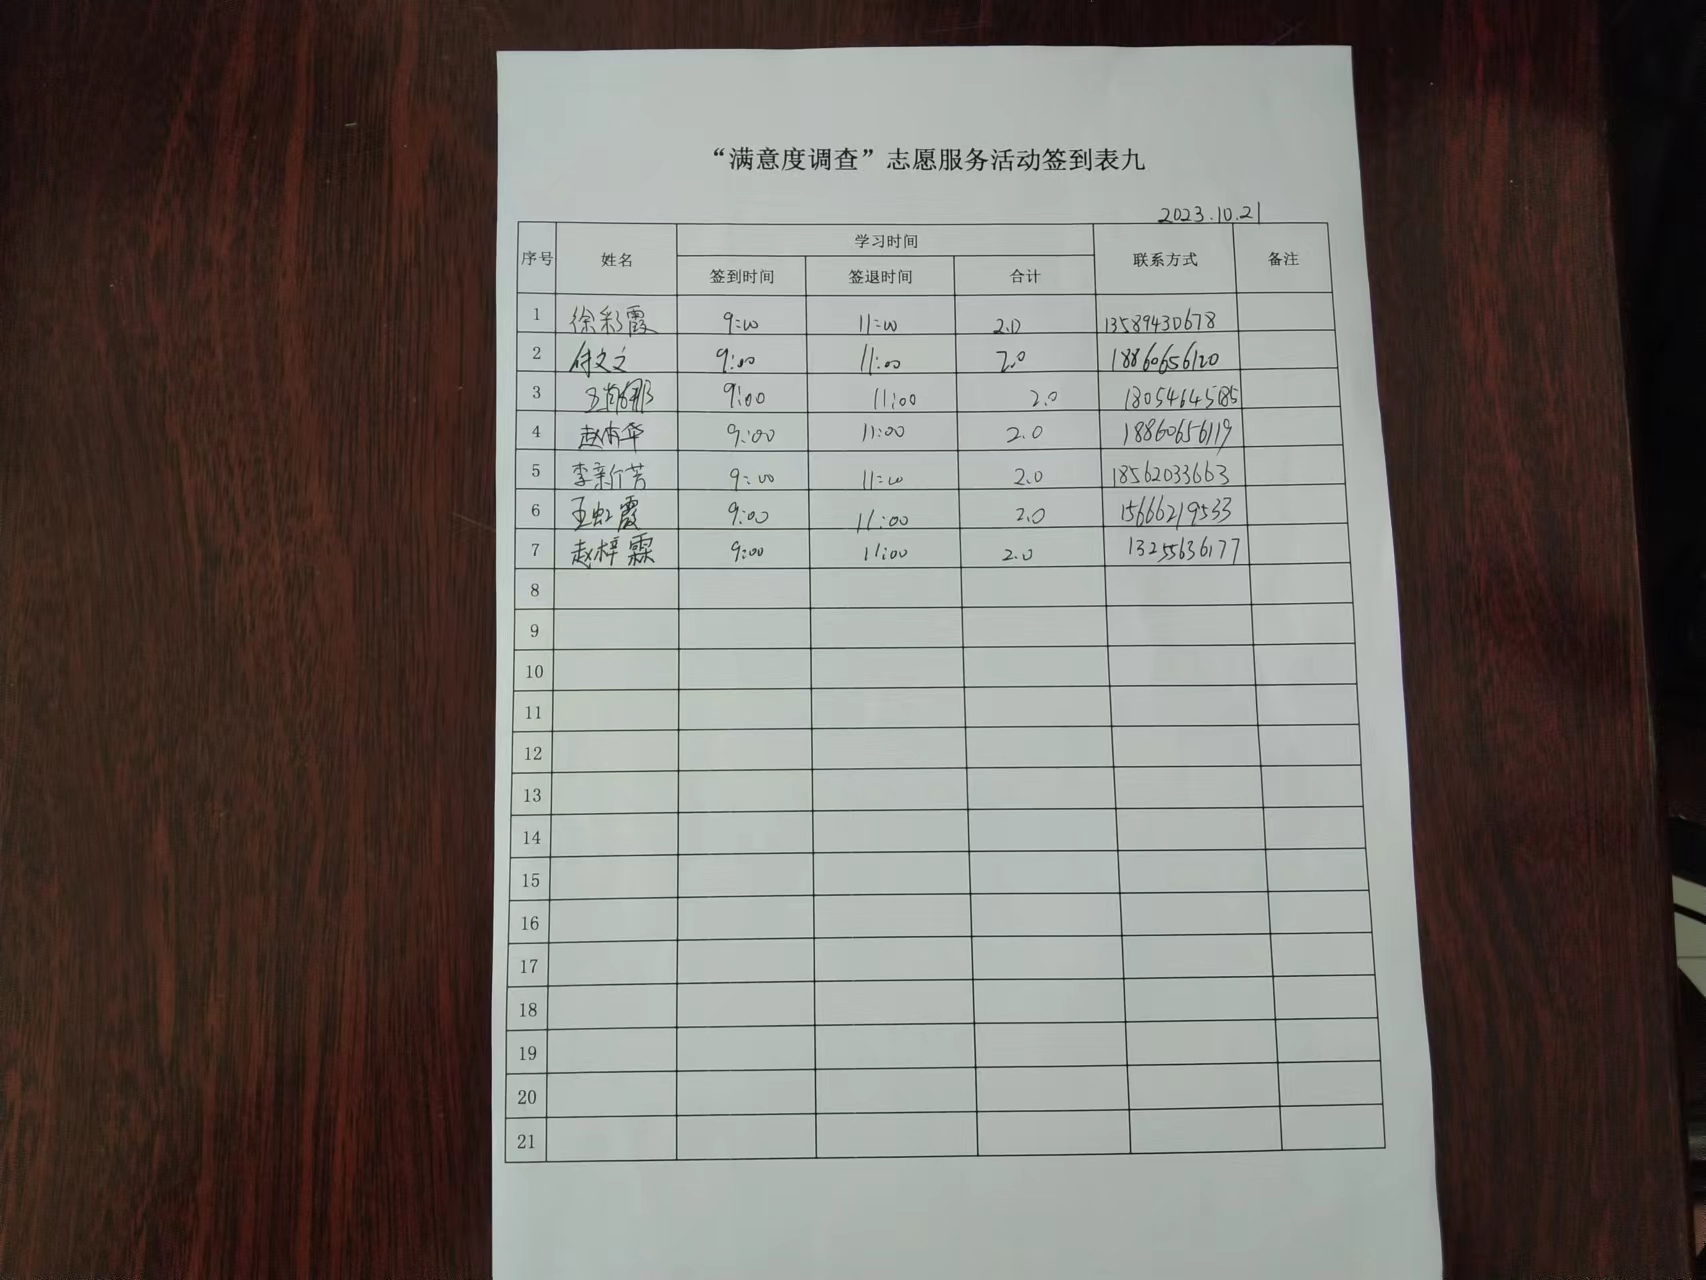 “满意度调查”志愿服务活动签到表九
2023.10.21
序号 姓名 学习时间 联系方式 备注
签到时间 签退时间 合计
1 徐彩霞 9:00 11:00 2.0 13589430678
2 付文文 9:00 11:00 2.0 18860656120
3 9:00 11:00 2.0
4 9:00 11:00 2.0 18860656119
5 李新芳 9:00 11:00 2.0 18562033663
6 王虹霞 9:00 11:00 2.0 15666219533
7 赵梓霖 9:00 11:00 2.0 13255636177
8
9
10
11
12
13
14
15
16
17
18
19
20
21